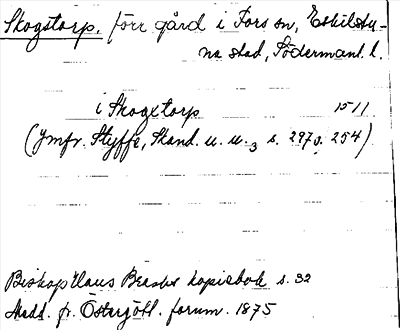 Skogstorp, förr gård i Fors sn, Eskilstu-
na stad, Södermanl. l.
i Skogetorp 1511
(Jmfr. Styffe, Skand. u. u.3 s. 297 o. 254).
Biskop Hans Brasks kopiebok s. 32
Medd. fr. Östergötl. fornm. 1875